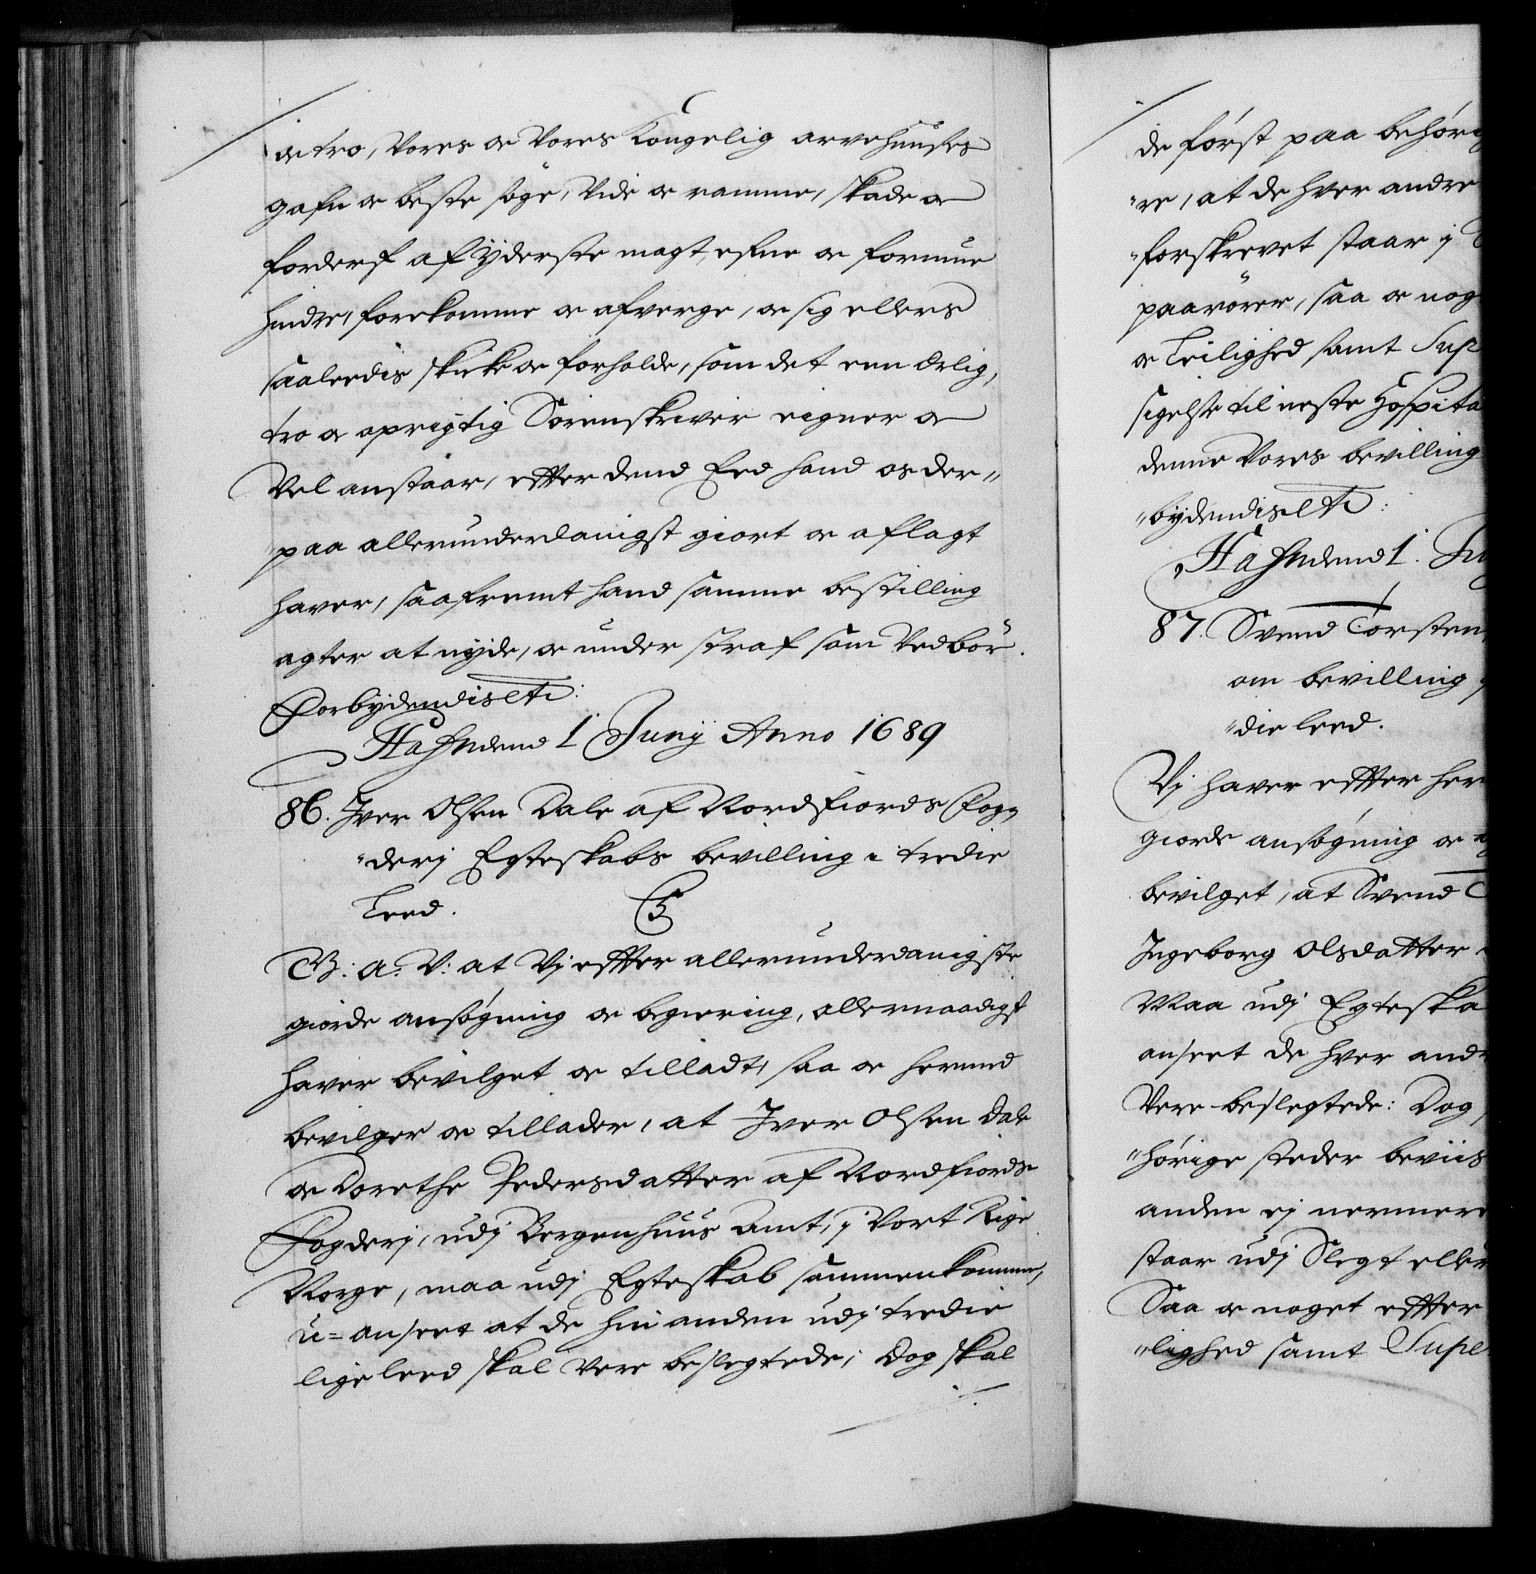 oc tro, Vores oc Vores Kongelig arvehuuses
gafn oc beste søge, Vide oc ramme, skade oc
forderf af yderste magt, efne oc formue
hindre, forekomme oc afverge, oc sig ellers
saaledis skicke oc forholde, som det een ærlig,
tro oc oprigtig Sorenskriver eigner oc
Vel anstaar, effter dend Eed hand os der„
„paa allerunderdanigst giort oc aflagt
haver, saafremt hand samme bestilling
agter at nyde, oc under straf som Vedbør.
Forbydendis etc:
Hafn dend 1 Junij Anno 1689
86. Iver Olsen Dale af Nordfiords Fog„
„derj Egteskabs bevilling i tredie
Leed.
G: a: V: at Vj effter allerunderdanigste
giorde ansøgning oc begiering, allernaadigst
haver bevilget oc tilladt, saa oc hermed
bevilger oc tillader, at Iver Olsen Dale
oc Dorethe Pedersdatter af Nordfiords
Fogderj, udj Bergenhuus Amt, j Vort Rige
Norge, maa udj Egteskab sammenkomme,
u=anseet at de hin anden udj tredie
lige leed skal Vere beslegtede; Dog skal
de først paa behørig
„re, at de hver andre
„forskrevet staar j
paarører, saa oc nog
oc Leilighed samt Sup
sigelse til neste Hospita
denne Vores bevilling
„bydendis etc:
Hafn dend 1. Ju
87. Svend Torsten
om bevilling
„die leed.
Vj haver effter her
giorde ansøgning oc
bevilget, at Svend T
Ingeborg Olsdatter
Maa udj Egteska
anseet de hver andr
Vere beslegtede: Dog
„hørige steder beviis
anden ej nermere
staar udj Slegt eller
Saa oc noget effter
„lighed samt Supe